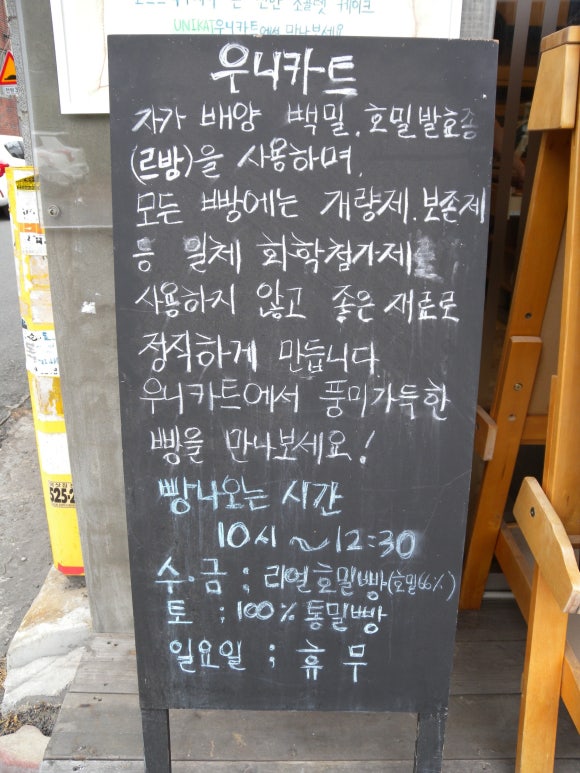 UNIKAT우니카트에서 만나보세요
우니카트
자가 배양 백밀, 호밀발효종
(르방)을 사용하며,
모든 빵에는 개량제, 보존제
등 일체 화학첨가제
사용하지 않고 좋은 재료로
정직하게 만듭니다.
우니카트에서 풍미가득한
빵을 만나보세요!
빵나오는 시간
10시 ~12:30
수·금 ; 리얼호밀빵(호밀66%)
토 ; 100% 통밀빵
일요일 ; 휴무
525-2